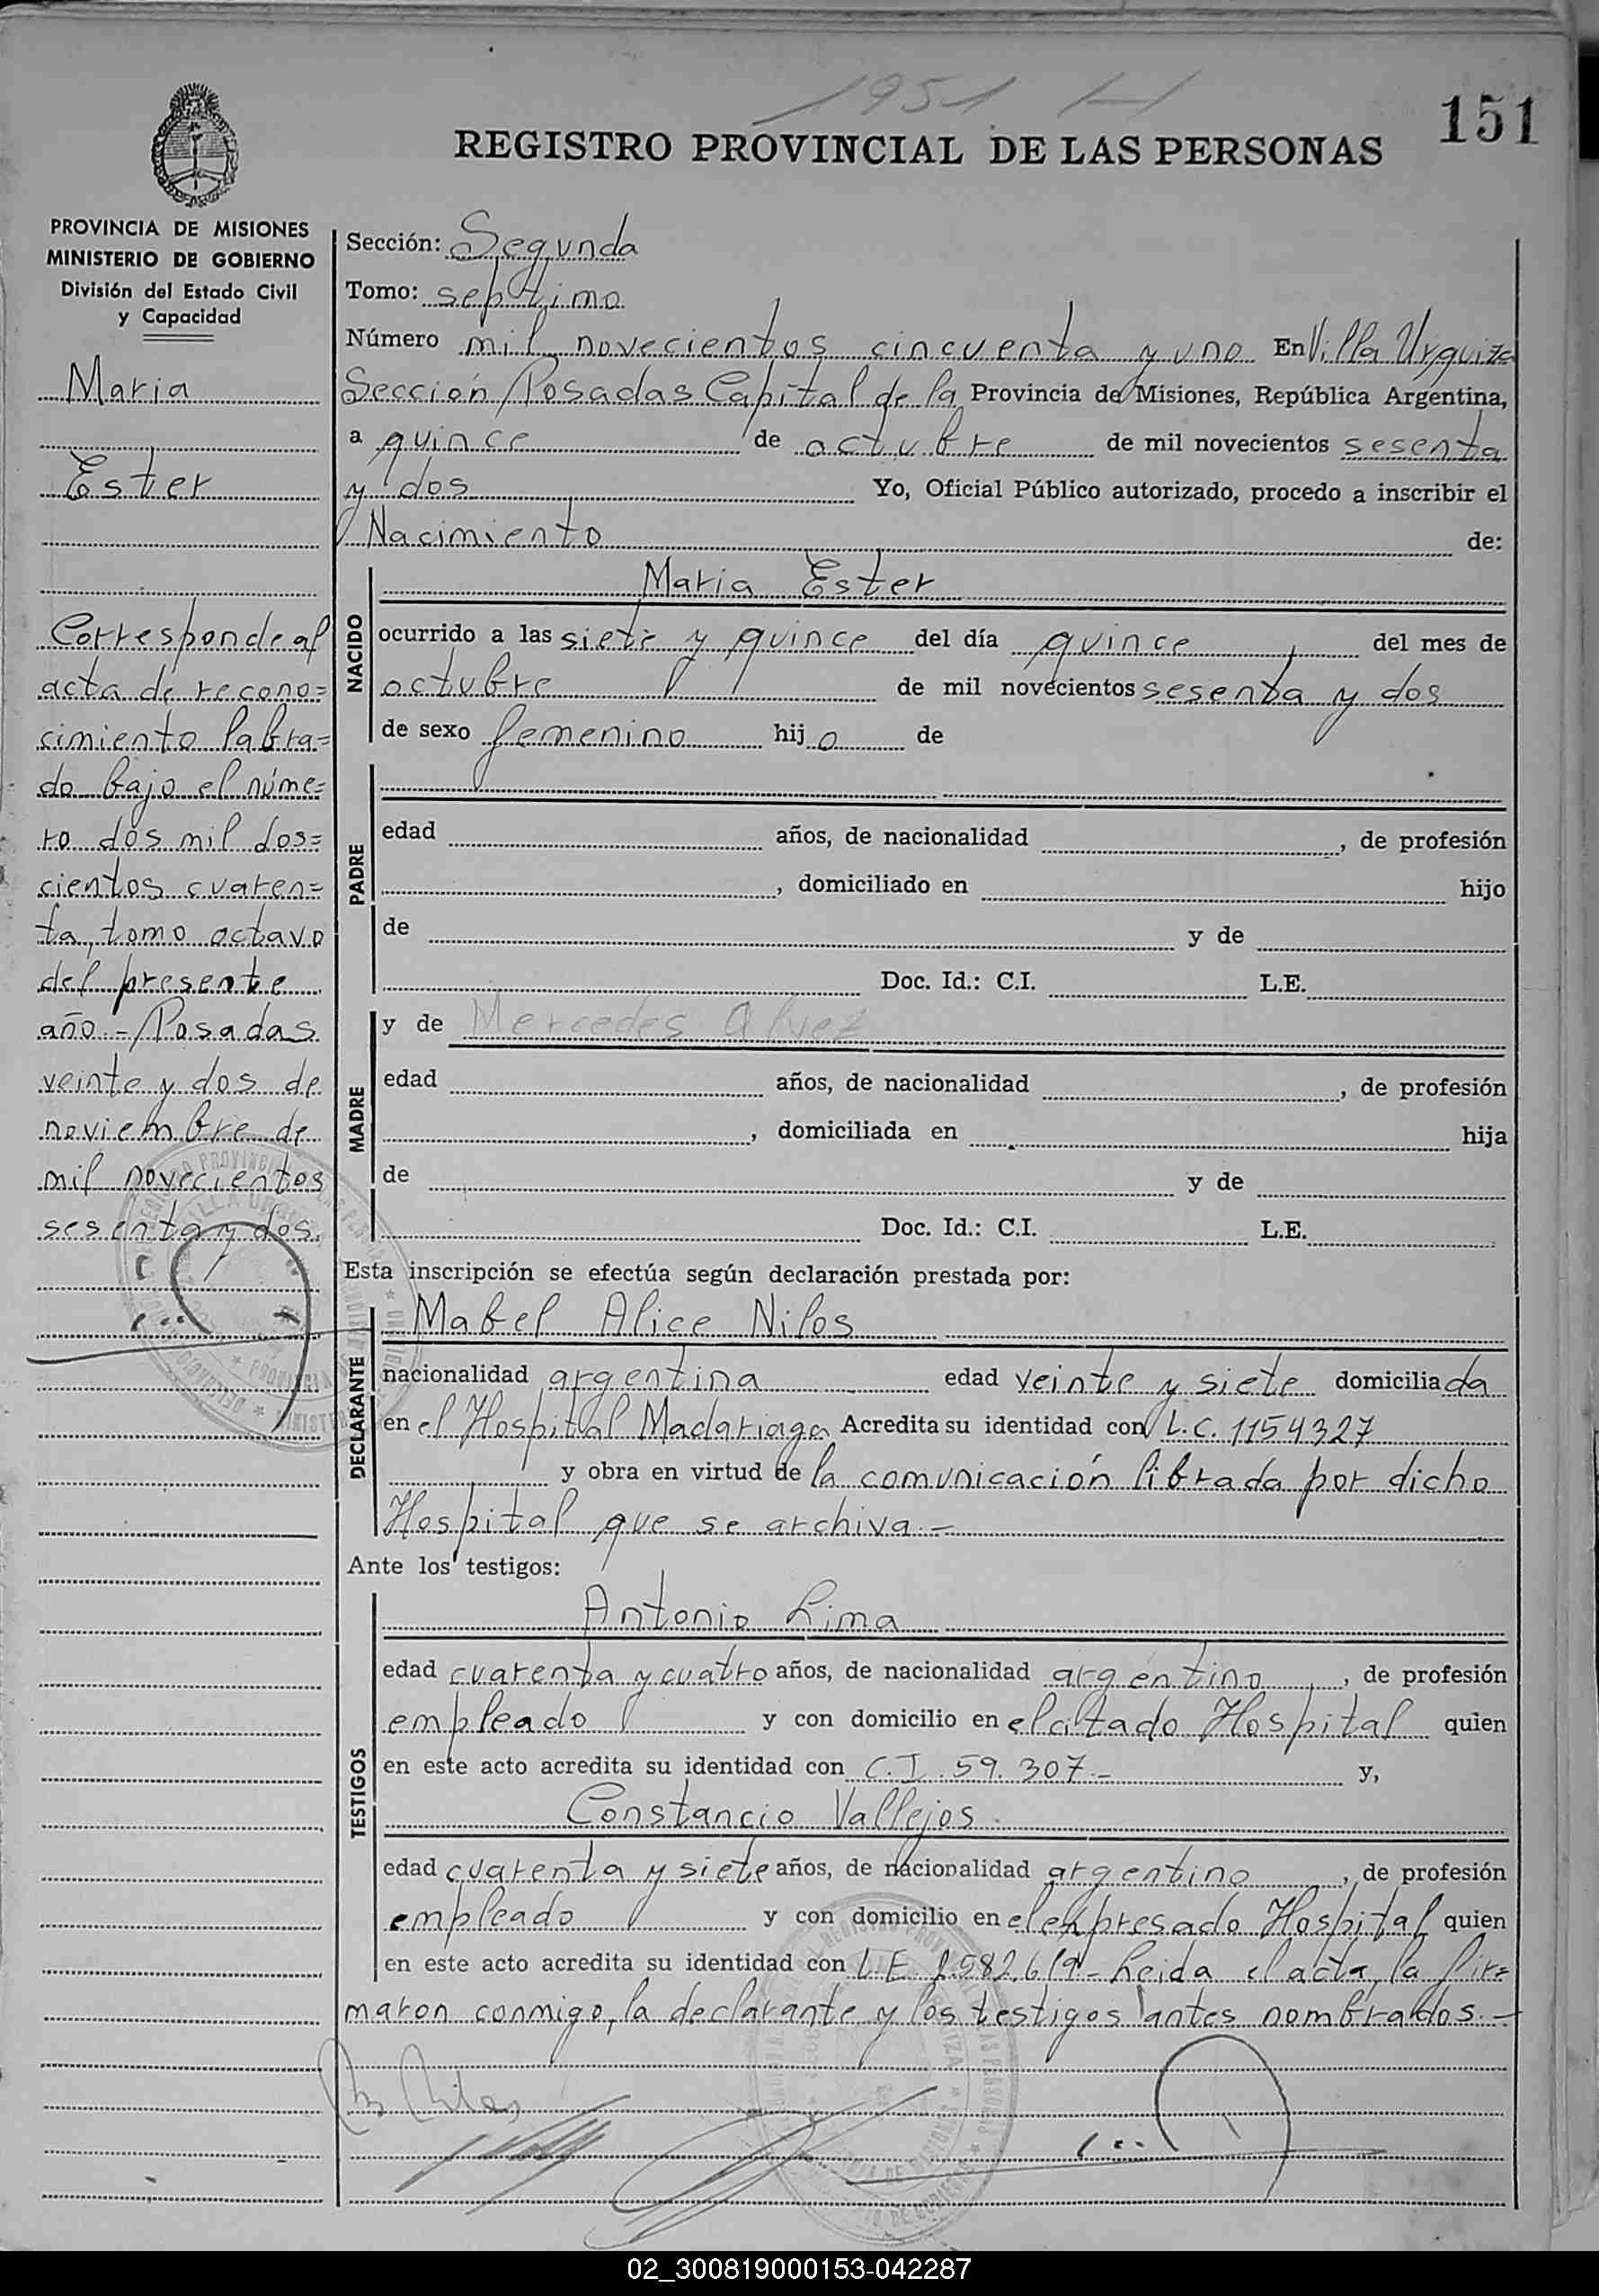 1951 H
151
REGISTRO PROVINCIAL DE LAS PERSONAS
PROVINCIA DE MISIONES
MINISTERIO DE GOBIERNO
División del Estado Civil
y Capacidad
Maria
Ester
Corresponde al
acta de recono=
cimiento labra=
do bajo el núme=
ro dos mil dos=
cientos cuaren=
ta, tomo octavo
del presente
año.- Posadas
veinte y dos de
noviembre de
mil novecientos
sesenta y dos.
Sección: Segunda
Tomo: septimo
Número mil novecientos cincuenta y uno En Villa Urquiza
Sección Posadas Capital de la Provincia de Misiones, República Argentina,
a quince de octubre de mil novecientos sesenta
y dos Yo, Oficial Público autorizado, procedo a inscribir el
Nacimiento de:
NACIDO
Maria Ester
ocurrido a las siete y quince del día quince del mes de
octubre de mil novecientos sesenta y dos
de sexo femenino hij o de
PADRE
edad años, de nacionalidad , de profesión
, domiciliado en hijo
de y de
Doc. Id.: C.I. L.E.
MADRE
y de Mercedes Alvez
edad años, de nacionalidad , de profesión
, domiciliada en hija
de y de
Doc. Id.: C.I. L.E.
Esta inscripción se efectúa según declaración prestada por:
DECLARANTE
Mabel Alice Nilos
nacionalidad argentina edad veinte y siete domiciliada
en el Hospital Madariaga Acredita su identidad con L.C. 1154327
y obra en virtud de la comunicación librada por dicho
Hospital que se archiva.-
Ante los testigos:
TESTIGOS
Antonio Lima
edad cuarenta y cuatro años, de nacionalidad argentino , de profesión
empleado y con domicilio en el citado Hospital quien
en este acto acredita su identidad con C.I. 59.307.- y,
Constancio Vallejos.
edad cuarenta y siete años, de nacionalidad argentino , de profesión
empleado y con domicilio en el expresado Hospital quien
en este acto acredita su identidad con L.E. Leida el acta, la fir=
maron conmigo, la declarante y los testigos antes nombrados.-
02_300819000153-042287